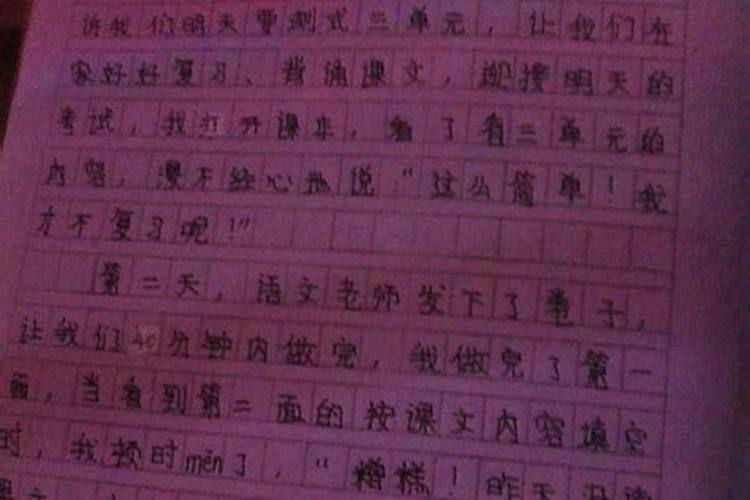 诉我们明天要测式三单元，让我们在
家好好复习、背诵课文，迎接明天的
考试，我打开课本，看了看三单元的
内容，漫不经心地说“这么简单！我
才不复习呢！”
第二天，语文老师发下了卷子，
让我们40分钟内做完，我做完了第一
面，当看到第二面的按课文内容填空
时，我顿时mēn了，“糟糕！昨天